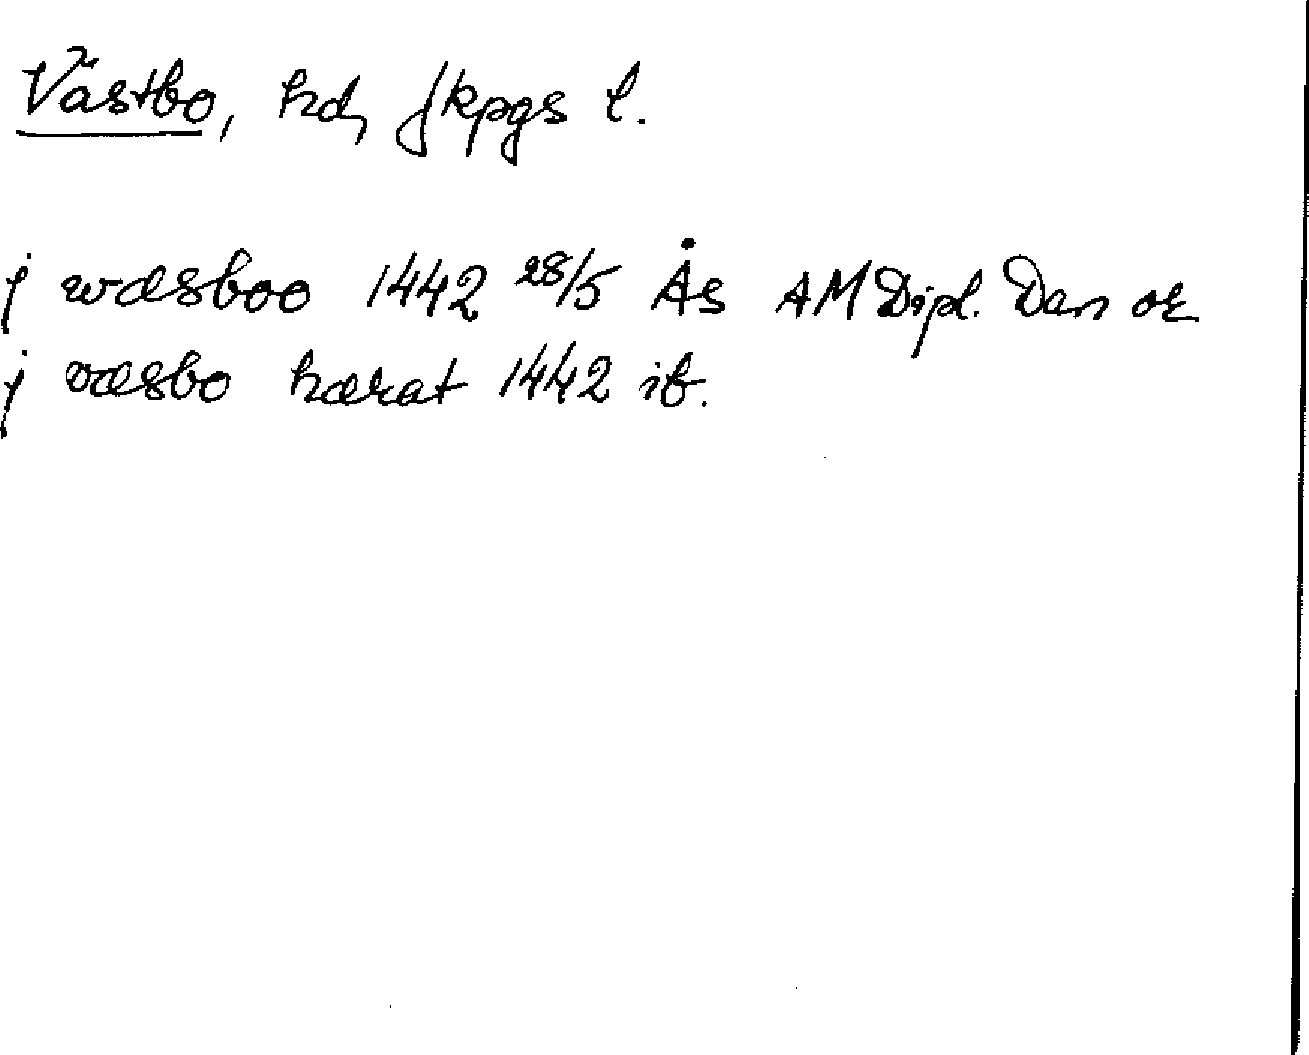 Västbo, hd, Jkpgs l.
j wæsboo 1442 28/5 Ås AM Dipl. Dan or
j væsbo hærat 1442 ib.